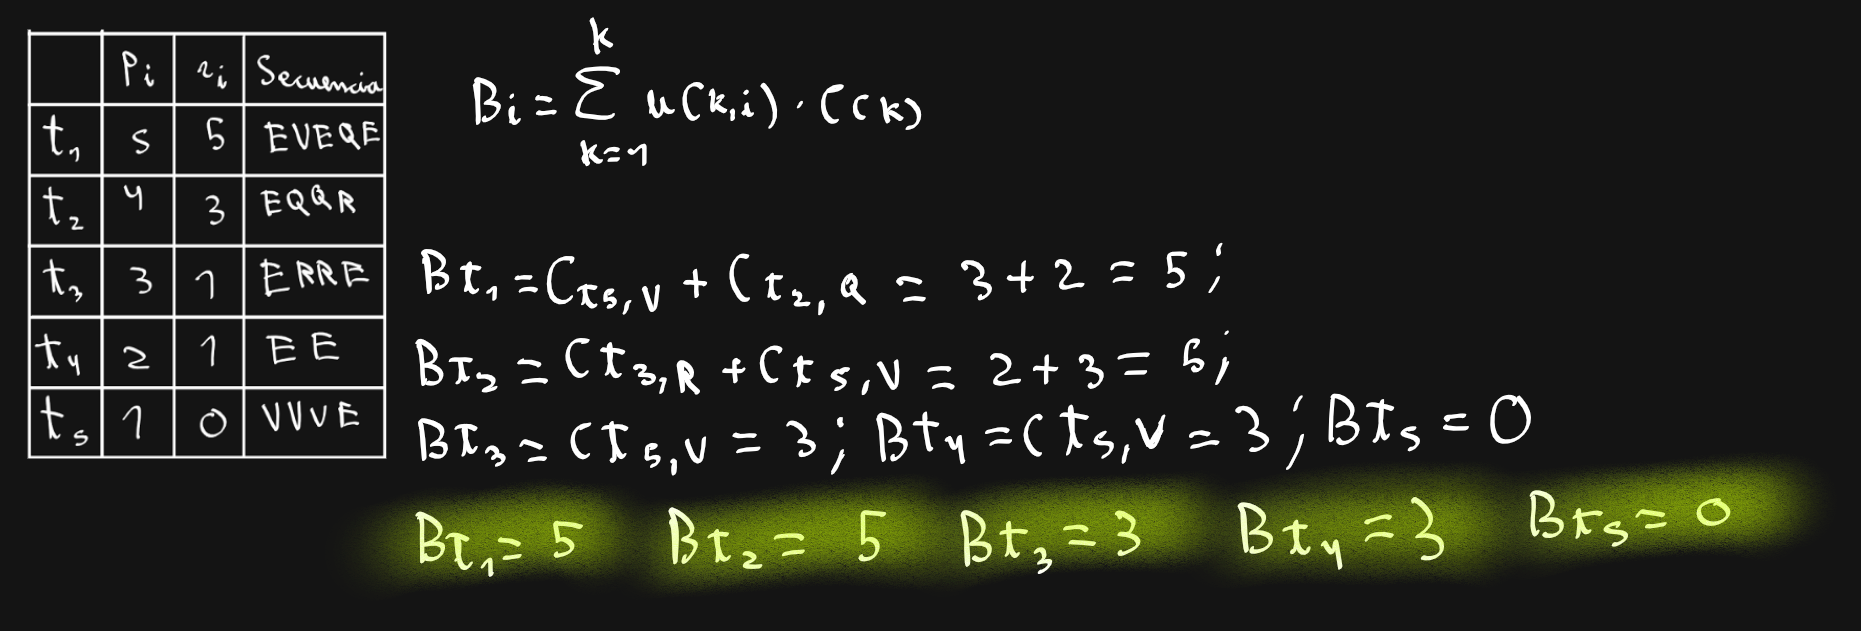 Pi ri Secuencia
t1 5 5 EVEQE
t2 4 3 EQQR
t3 3 1 ERRE
t4 2 1 EE
t5 1 0 VVVE
k
Bi = Σ u(k,i) · C(k)
k=1
Bt1 = Ct5,V + Ct2,Q = 3 + 2 = 5;
Bt2 = Ct3,R + Ct5,V = 2 + 3 = 5;
Bt3 = Ct5,V = 3; Bt4 = Ct5,V = 3; Bt5 = 0
Bt1 = 5 Bt2 = 5 Bt3 = 3 Bt4 = 3 Bt5 = 0